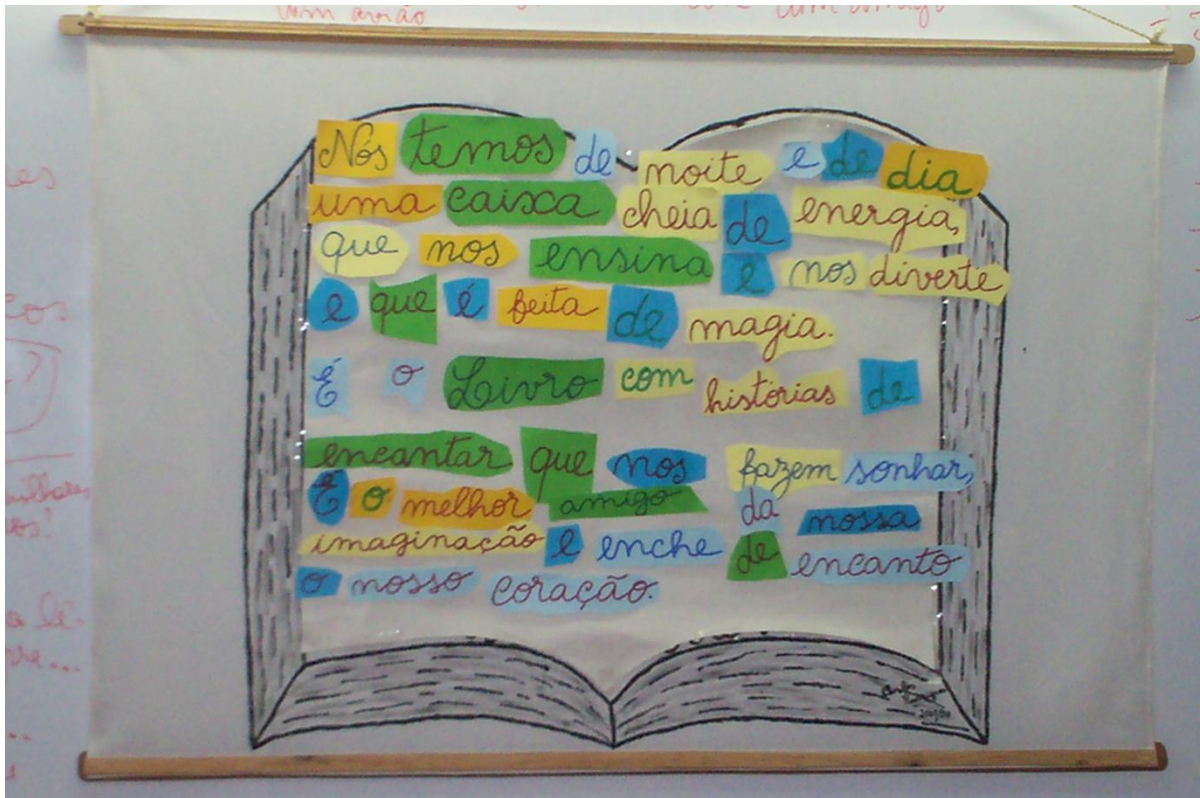 com avião
Nós temos de noite e de dia
uma caixa cheia de energia,
que nos ensina e nos diverte
e que é feita de magia.
É o Livro com histórias de
encantar que nos fazem sonhar,
É o melhor amigo da nossa
imaginação e enche de encanto
o nosso coração.